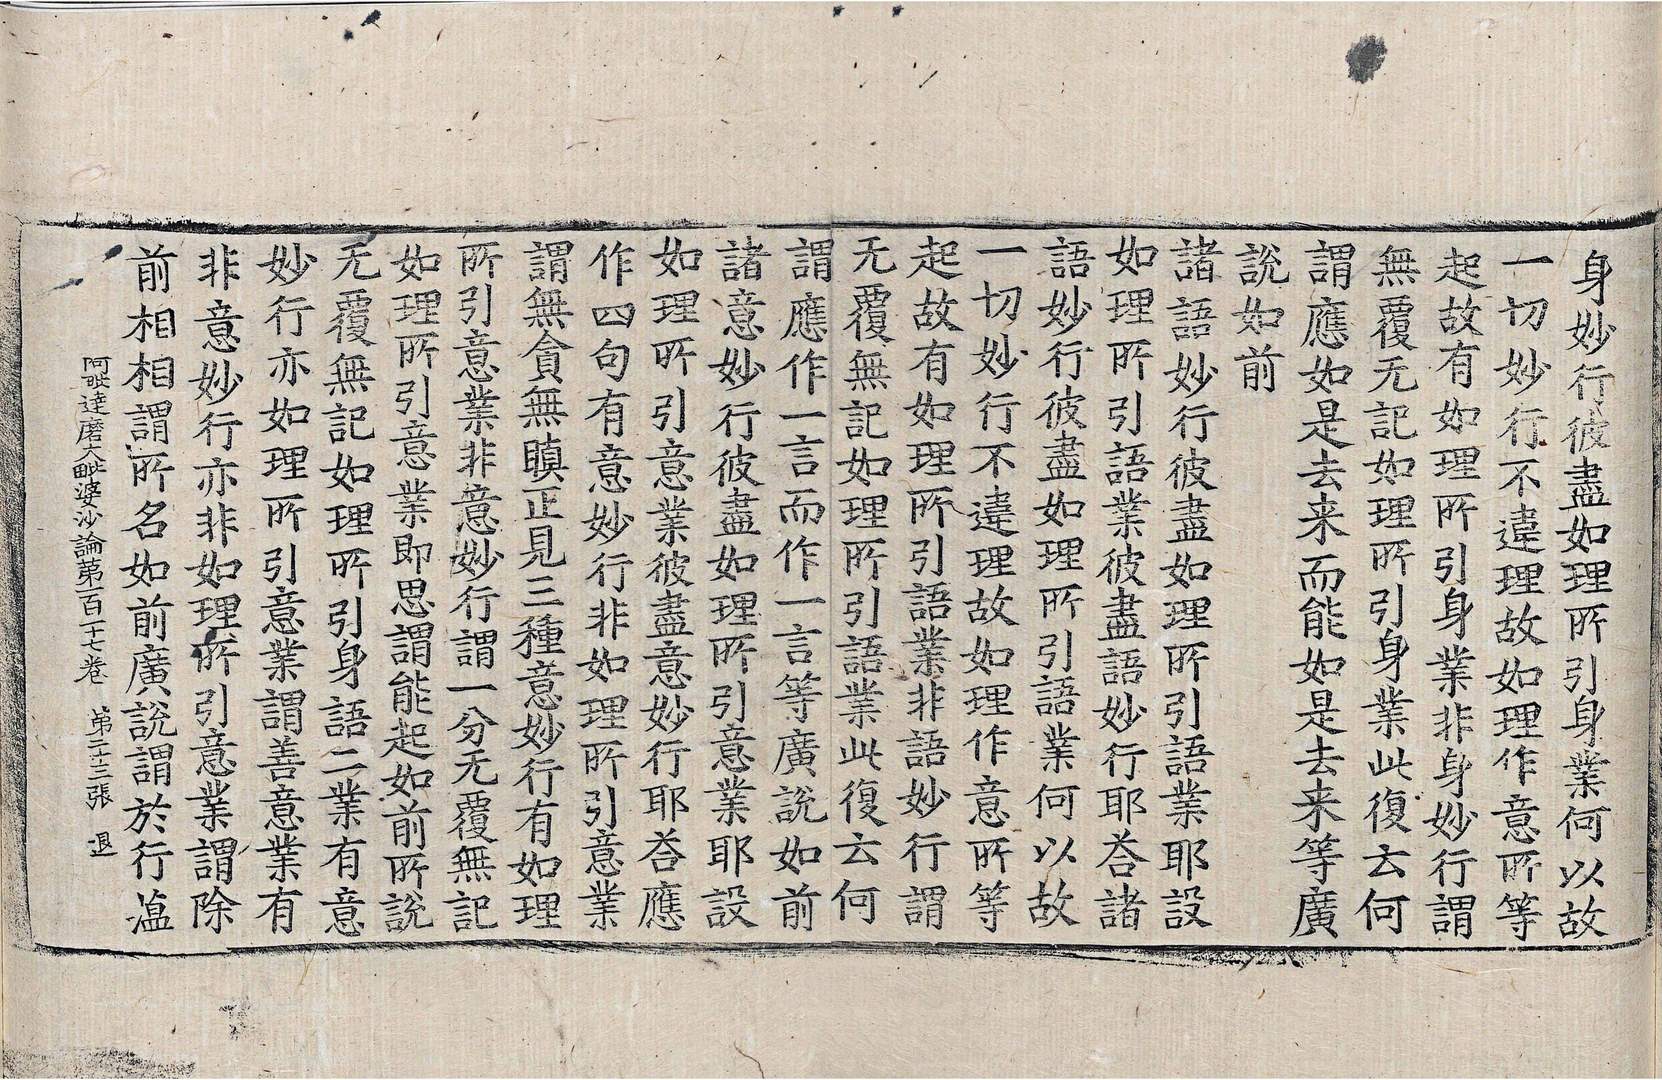 身妙行彼盡如理所引身業何以故
一切妙行不違理故如理作意所等
起故有如理所引身業非身妙行謂
無覆无記如理所引身業此復云何
謂應如是去来而能如是去来等廣
說如前
諸語妙行彼盡如理所引語業耶設
如理所引語業彼盡語妙行耶荅諸
語妙行彼盡如理所引語業何以故
一切妙行不違理故如理作意所等
起故有如理所引語業非語妙行謂
无覆無記如理所引語業此復云何
謂應作一言而作一言等廣說如前
諸意妙行彼盡如理所引意業耶設
如理所引意業彼盡意妙行耶荅應
作四句有意妙行非如理所引意業
謂無貪無瞋正見三種意妙行有如理
所引意業非意妙行謂一分无覆無記
如理所引意業即思謂能起如前所說
无覆無記如理所引身語二業有意
妙行亦如理所引意業謂善意業有
非意妙行亦非如理所引意業謂除
前相相謂所名如前廣說謂於行薀
阿毗達磨大毗婆沙論第一百一十七卷 第二十三張 退